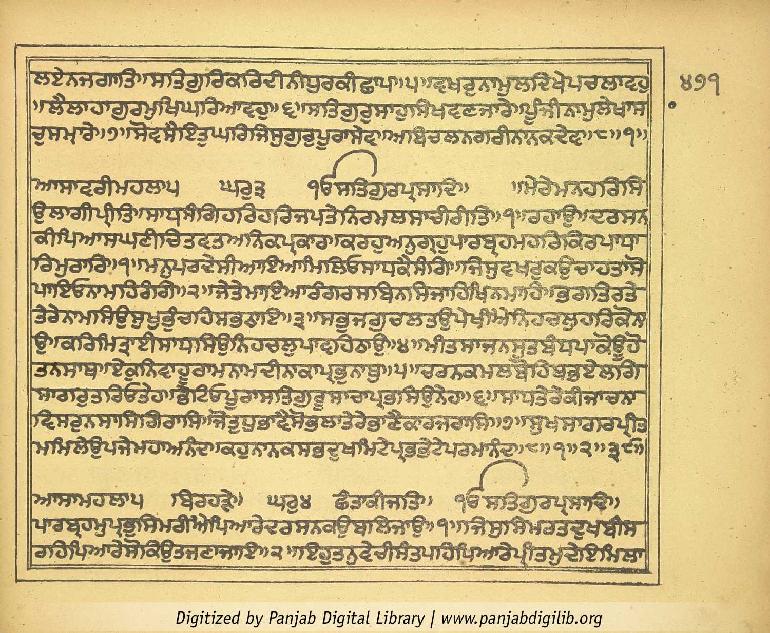 ਲਏਨਜਗਾਤਿ॥ਸਤਿਗੁਰਿਕਰਿਦੀਨੀਧੁਰਕੀਛਾਪ॥੫॥ਵਖਰੁਨਾਮੁਲਦਿਖੇਪਚਲਾਵਹੁ
॥ਲੈਲਾਹਾਗੁਰਮੁਖਿਘਰਿਆਵਹੁ॥੬॥ਸਤਿਗੁਰੁਸਾਹੁਸਿਖਵਣਜਾਰੇ॥ਪੂੰਜੀਨਾਮੁਲੇਖਾਸਾ
ਚੁਸਮ੍ਹਾਰੇ॥੭॥ਸੋਵਸੈਇਤੁਘਰਿਜਿਸੁਗੁਰੁਪੂਰਾਸੇਵ॥ਅਬਿਚਲਨਗਰੀਨਾਨਕਦੇਵ॥੮॥੧॥
ਆਸਾਵਰੀਮਹਲਾ੫ ਘਰੁ੩ ੴਸਤਿਗੁਰਪ੍ਰਸਾਦਿ॥ ॥ਮੇਰੇਮਨਹਰਿਸਿ
ਉਲਾਗੀਪ੍ਰੀਤਿ॥ਸਾਧਸੰਗਿਹਰਿਹਰਿਜਪਤਨਿਰਮਲਸਾਚੀਰੀਤਿ॥੧॥ਰਹਾਉ॥ਦਰਸਨ
ਕੀਪਿਆਸਘਣੀਚਿਤਵਤਅਨਿਕਪ੍ਰਕਾਰ॥ਕਰਹੁਅਨੁਗ੍ਰਹੁਪਾਰਬ੍ਰਹਮਹਰਿਕਿਰਪਾਧਾ
ਰਿਮੁਰਾਰਿ॥੧॥ਮਨੁਪਰਦੇਸੀਆਇਆਮਿਲਿਓਸਾਧਕੈਸੰਗਿ॥ਜਿਸੁਵਖਰਕਉਚਾਹਤਾਸੋ
ਪਾਇਓਨਾਮਹਿਰੰਗਿ॥੨॥ਜੇਤੇਮਾਇਆਰੰਗਰਸਬਿਨਸਿਜਾਹਿਖਿਨਮਾਹਿ॥ਭਗਤਰਤੇ
ਤੇਰੇਨਾਮਸਿਉਸੁਖੁਭੁੰਚਹਿਸਭਠਾਇ॥੩॥ਸਭੁਜਗੁਚਲਤਉਪੇਖੀਐਨਿਹਚਲੁਹਰਿਕੋਨਾ
ਉ॥ਕਰਿਮਿਤ੍ਰਾਈਸਾਧਸਿਉਨਿਹਚਲੁਪਾਵਹਿਠਾਉ॥੪॥ਮੀਤਸਾਜਨਸੁਤਬੰਧਪਾਕੋਊਹੋ
ਤਨਸਾਥ॥ਏਕੁਨਿਵਾਹੂਰਾਮਨਾਮਦੀਨਾਕਾਪ੍ਰਭੁਨਾਥ॥੫॥ਚਰਨਕਮਲਬੋਹਿਥਭਏਲਗਿ
ਸਾਗਰੁਤਰਿਓਤੇਹ॥ਭੇਟਿਓਪੂਰਾਸਤਿਗੁਰੂਸਾਚਾਪ੍ਰਭਸਿਉਨੇਹ॥੬॥ਸਾਧਤੇਰੇਕੀਜਾਚਨਾ
ਵਿਸਰੁਨਸਾਸਿਗਿਰਾਸਿ॥ਜੋਤੁਧੁਭਾਵੈਸੋਭਲਾਤੇਰੈਭਾਣੈਕਾਰਜਰਾਸਿ॥੭॥ਸੁਖਸਾਗਰਪ੍ਰੀਤ
ਮਮਿਲੇਉਪਜੇਮਹਾਅਨੰਦ॥ਕਹੁਨਾਨਕਸਭਦੁਖਮਿਟੇਪ੍ਰਭਭੇਟੇਪਰਮਾਨੰਦ॥੮॥੧॥੨॥
ਆਸਾਮਹਲਾ੫ ਬਿਰਹੜੇ॥ ਘਰੁ੪ ਛੰਤਾਕੀਜਤਿ॥ ੴਸਤਿਗੁਰਪ੍ਰਸਾਦਿ॥
ਪਾਰਬ੍ਰਹਮੁਪ੍ਰਭੁਸਿਮਰੀਐਪਿਆਰੇਦਰਸਨਕਉਬਲਿਜਾਉ॥੧॥ਜਿਸੁਸਿਮਰਤਦੁਖਬੀਸ
ਰਹਿਪਿਆਰੇਸੋਕਿਉਤਜਣਾਜਾਇ॥੨॥ਇਹੁਤਨੁਵੇਚੀਸੰਤਪਹਿਪਿਆਰੇਪ੍ਰੀਤਮੁਦੇਇਮਿਲਾ
੪੭੧
Digitized by Panjab Digital Library | www.panjabdigilib.org